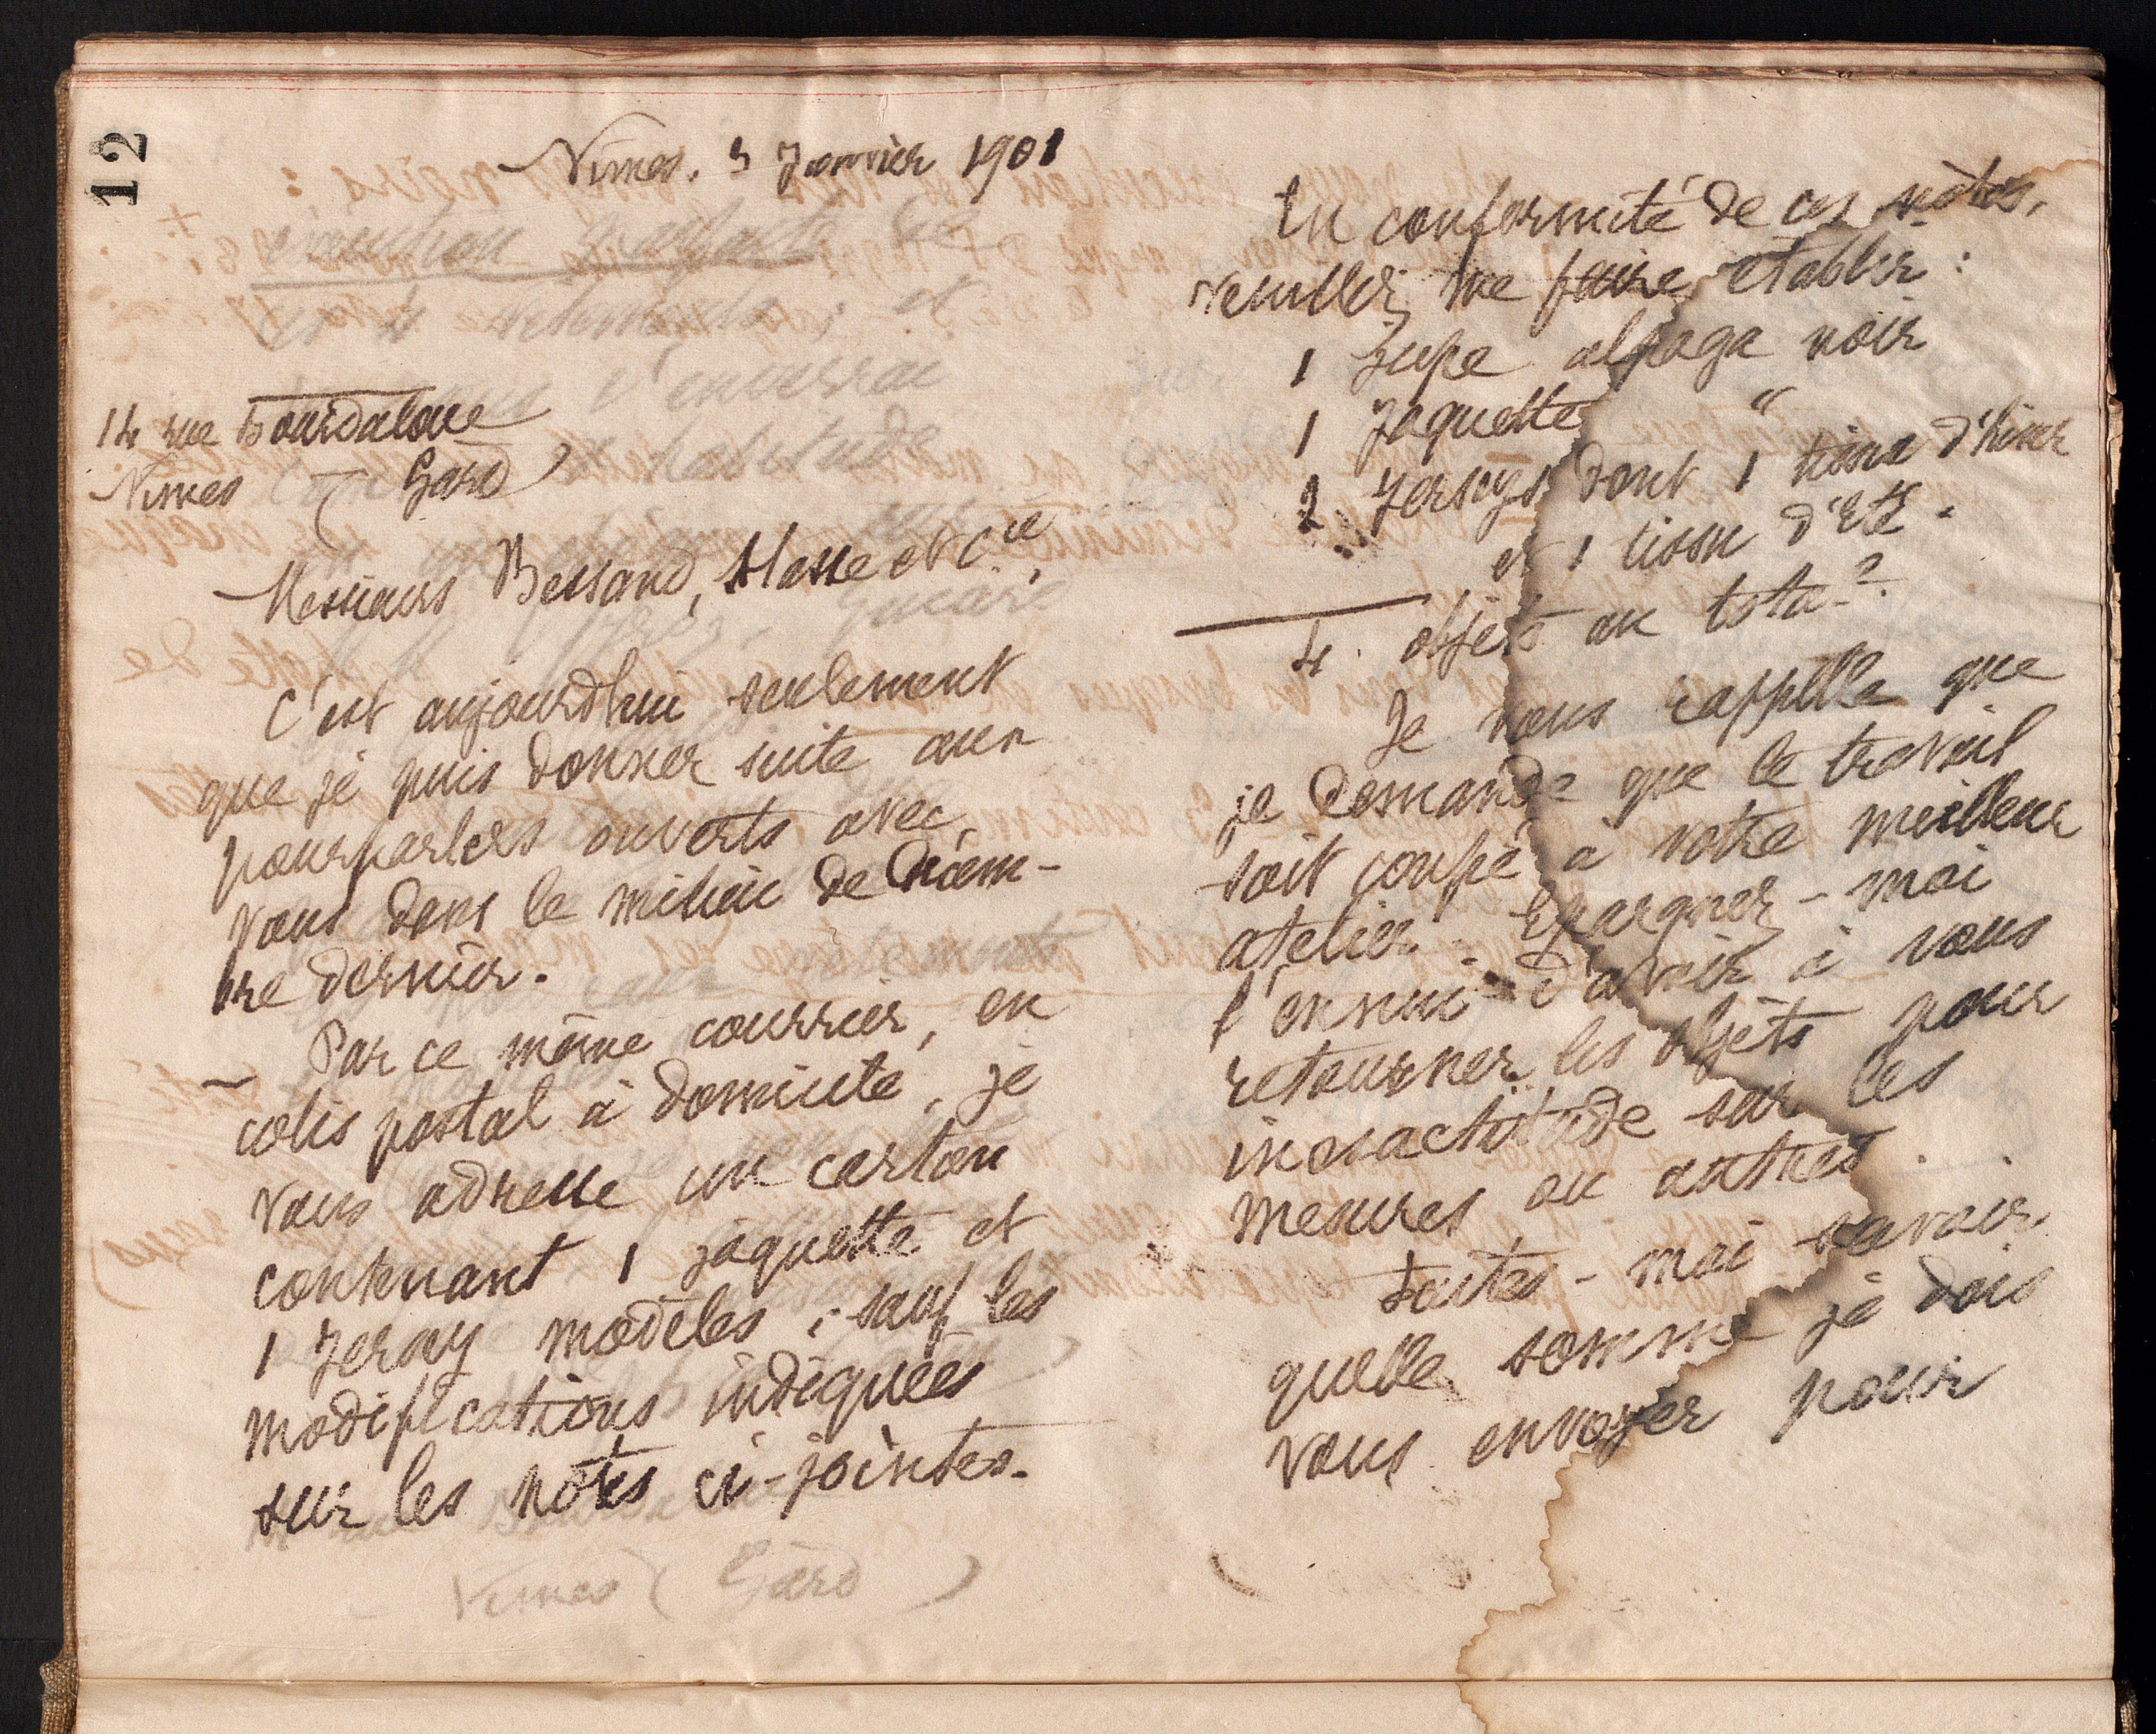 12
Nimes. 3 Janvier 1901
14 rue Bourdaloue
Nimes (Gard)
Messieurs Bessand, Stasse et Cie,
C'est aujourdhui seulement
que je puis donner suite aux
pourparlers ouverts avec
vous dans le milieu de Décem-
bre dernier.
Par ce même courrier, en
colis postal à domicile, je
vous adresse un carton
contenant 1 jaquette et
1 Jersey modèles ; sauf les
modifications indiquées
sur les notes ci-jointes.
Nimes (Gard)
En conformité de ces notes,
veuillez me faire établir :
1 Jupe alpaga noir
1 Jaquette "
2 Jerseys dont 1 tissu d'hiver
et 1 tissu d'Eté.
4 objets au total.
Je vous rappelle que
je demande que le travail
soit coupé à votre meilleur
atelier. Epargnez-moi
l'ennui d'avoir à vous
retourner les objets pour
inexactitude sur les
mesures ou autres.
Faites-moi savoir
quelle somme je dois
vous envoyer pour